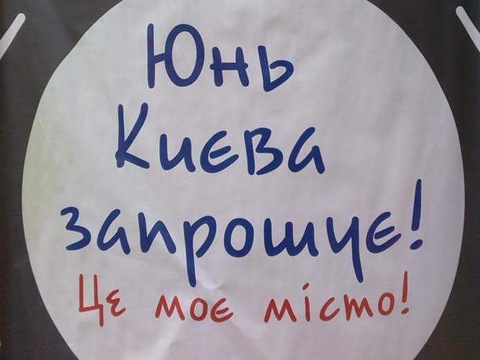 Юнь
Києва
запрошує!
Це моє місто!